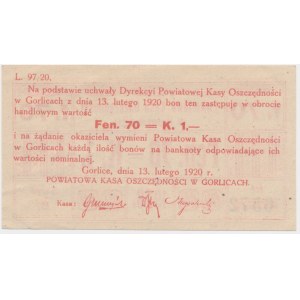 L. 97/20.
Na podstawie uchwały Dyrekcyi Powiatowej Kasy Oszczędności
w Gorlicach z dnia 13. lutego 1920 bon ten zastępuje w obrocie
handlowym wartość
Fen. 70 = K. 1,—
i na żądanie okaziciela wymieni Powiatowa Kasa Oszczędności
w Gorlicach każdą ilość bonów na banknoty odpowiadające ich
wartości nominalnej.
Gorlice, dnia 13. lutego 1920 r.
POWIATOWA KASA OSZCZĘDNOŚCI W GORLICACH.
Kasa: